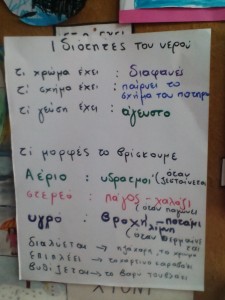 Ιδιότητες του νερού
τι χρώμα έχει : διαφανές
τι σχήμα έχει : παίρνει το
σχήμα του ποτηρ
τι γεύση έχει : άγευστο
τι μορφές το βρίσκουμε
Αέριο : υδρατμοί (όταν
ζεσταίνεται
στερεό : πάγος - χαλάζι
(όταν παγώνει
υγρό : βροχή - ποτάμι
λίμνη
(όταν
διαλύεται → η ζάχαρη, το
επιπλέει →
βυθίζεται → το